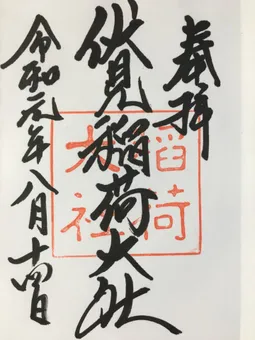 奉拝
伏見稲荷大社
稲荷大社
令和元年八月十四日